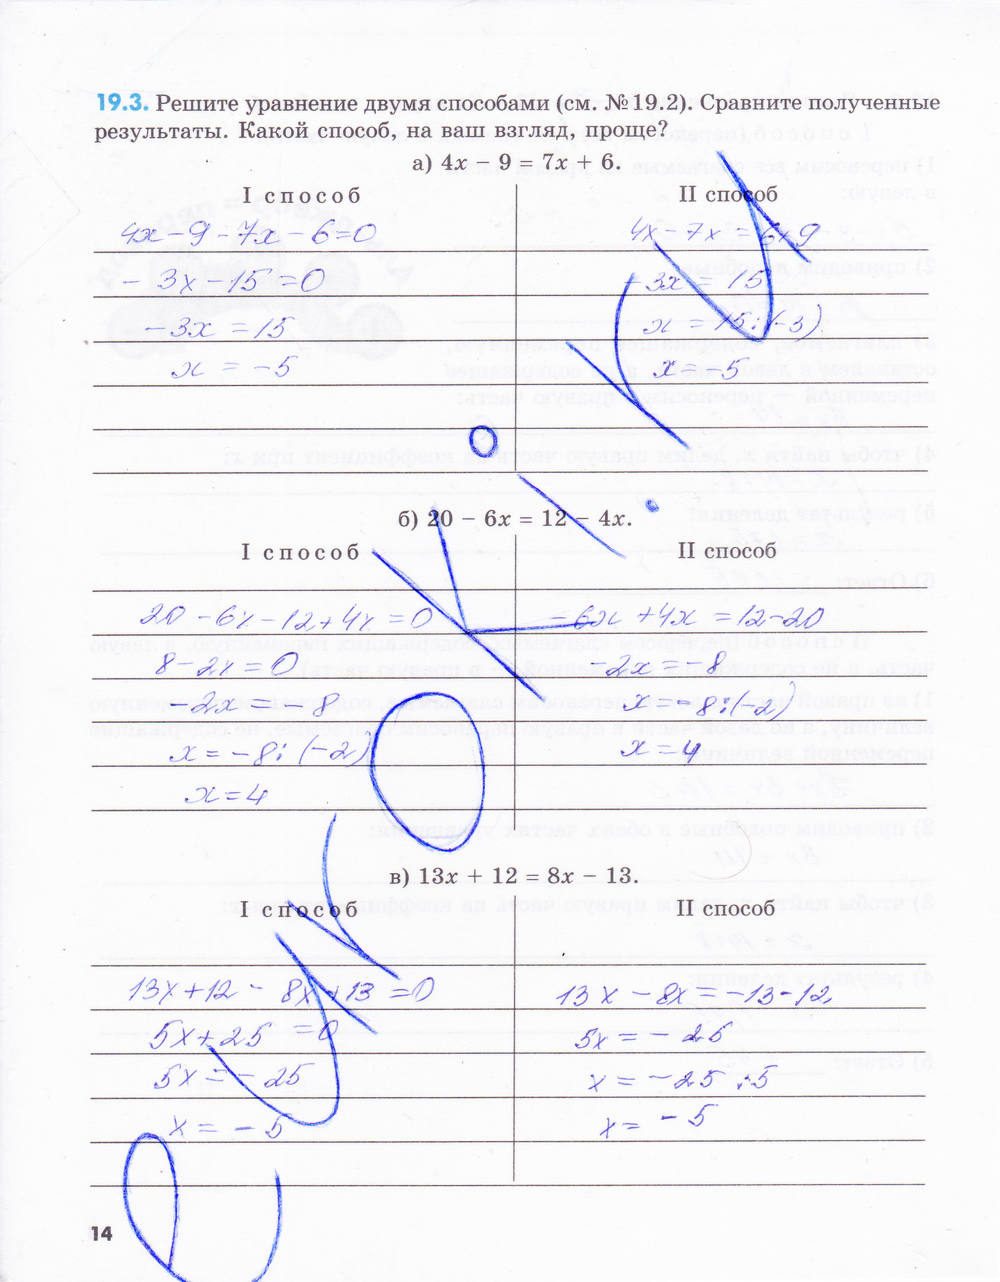 19.3. Решите уравнение двумя способами (см. №19.2). Сравните полученные
результаты. Какой способ, на ваш взгляд, проще?
а) 4x − 9 = 7x + 6.
I способ
4x − 9 − 7x − 6 = 0
− 3x − 15 = 0
− 3x = 15
x = −5
II способ
4x − 7x = 6+9
− 3x = 15
x = 15 : (−3)
x = −5
б) 20 − 6x = 12 − 4x.
I способ
20 − 6x − 12 + 4x = 0
8 − 2x = 0
− 2x = − 8
x = − 8 : (−2)
x = 4
II способ
− 6x + 4x = 12 − 20
− 2x = − 8
x = − 8 : (−2)
x = 4
в) 13x + 12 = 8x − 13.
I способ
13x + 12 − 8x + 13 = 0
5x + 25 = 0
5x = − 25
x = − 5
II способ
13x − 8x = −13 − 12
5x = − 25
x = − 25 : 5
x = − 5
14